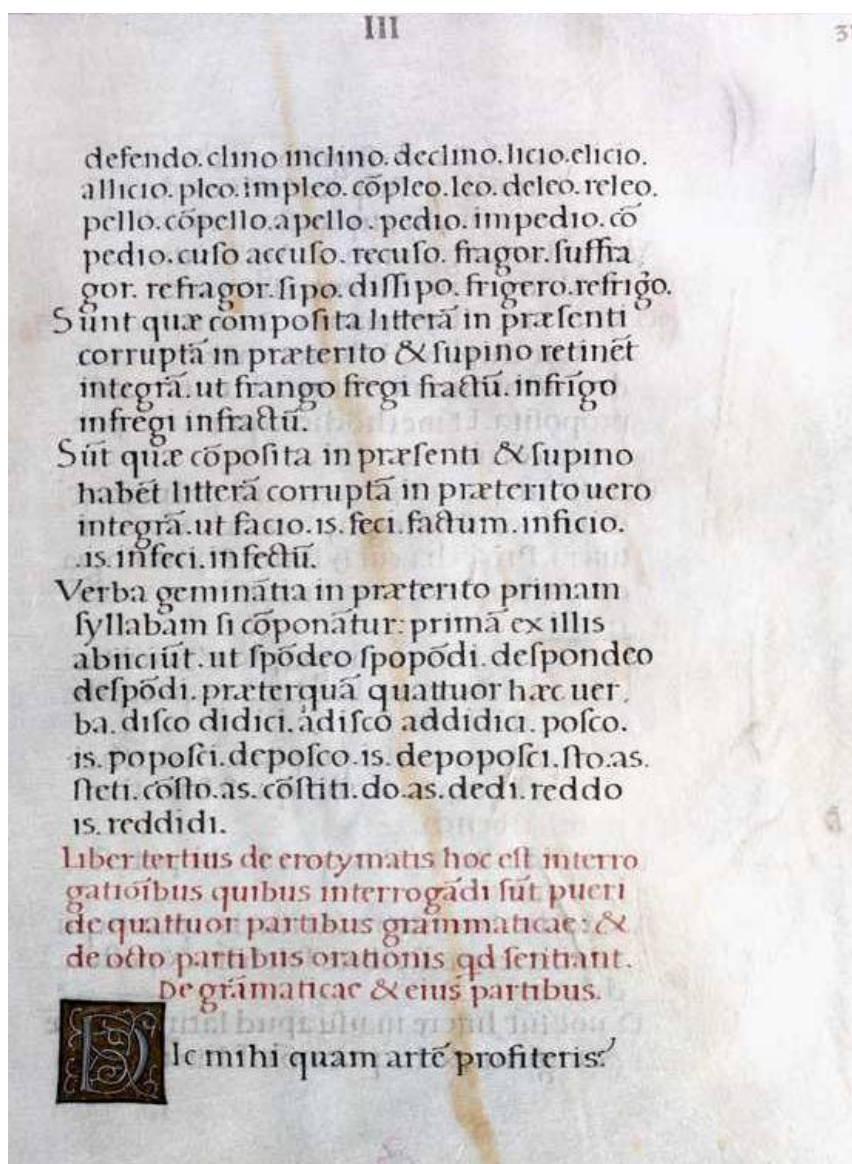 III
defendo. clino inclino. declino. licio. elicio.
allicio. pleo. impleo. cōpleo. leo. deleo. releo.
pello. cōpello. apello. pedio. impedio. cō
pedio. cuſo accuſo. recuſo. fragor. ſuffra
gor. refragor. ſipo. diſſipo. frigero. refrigo.
Sunt quæ compoſita litterā in præſenti
corruptā in præterito & ſupino retinēt
integrā. ut frango fregi fractū. infrīgo
infregi infractū.
Sūt quæ cōpoſita in præſenti & ſupino
habēt litterā corruptā in præterito uero
integrā. ut facio. is. feci. factum. inficio.
.is. infeci. infectū.
Verba geminātia in præterito primam
ſyllabam ſi cōponātur: primā ex illis
abiiciūt. ut ſpōdeo ſpopōdi. deſpondeo
deſpōdi. præterquā quattuor hæc uer
ba. diſco didici. adiſco addidici. poſco.
is. popoſci. depoſco. is. depopoſci. ſto. as.
ſteti. cōſto. as. cōſtiti. do. as. dedi. reddo
is. reddidi.
Liber tertius de erotymatis hoc eſt interro
gatioībus quibus interrogādi ſūt pueri
de quattuor partibus grammaticae: &
de octo partibus orationis qd ſentiant.
De grāmaticae & eius partibus.
DIc mihi quam artē profiteris?